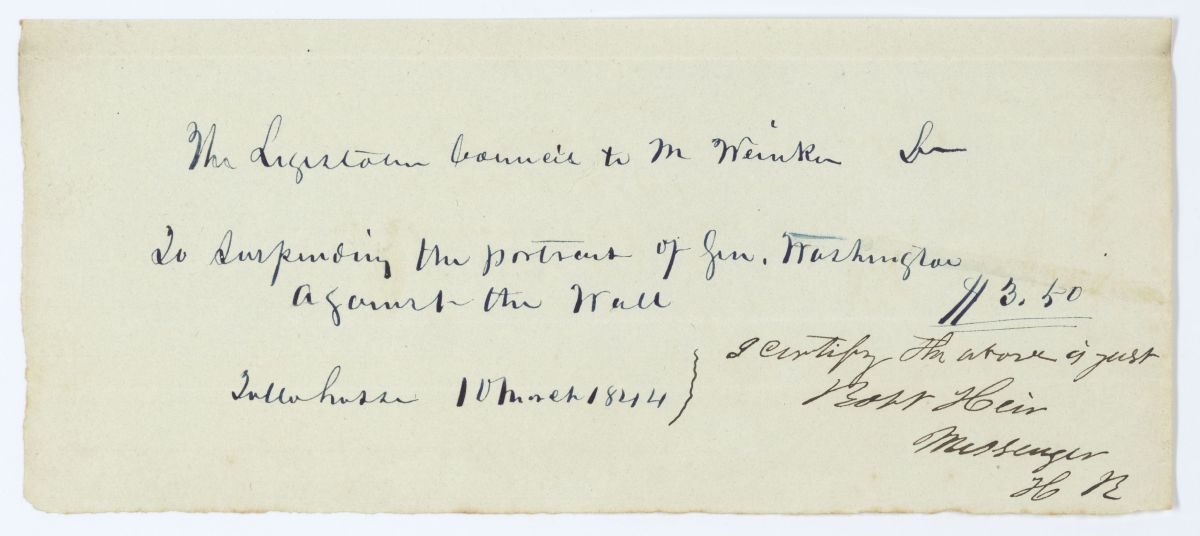 The Legislative Council to M Weinker Dr
To Suspending the portrait of Gen. Washington
Against the Wall
$3.50
Tallahasse 10 March 1844
I certify the above is just
Robt Heir
Messenger
H R